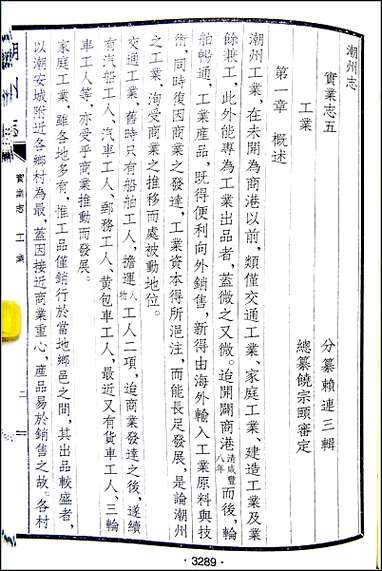 潮州志
實業志五
工業
分纂賴連三輯
總纂饒宗頤審定
第一章 概述
潮州工業、在未開為商港以前、類僅交通工業、家庭工業、建造工業及業
餘兼工、此外能專為工業出品者、蓋微之又微。迨開闢商港清咸豐八年而後、輪
舶暢通、工業產品、既得便利向外銷售、新得由海外輸入工業原料與技
術、同時復因商業之發達、工業資本得所挹注、而能長足發展、是論潮州
之工業、洵受商業之推移而處被動地位。
交通工業、舊時只有船舶工人、擔運人物工人二項、迨商業發達之後、遂續
有汽船工人、汽車工人、郵務工人、黄包車工人、最近又有貨車工人、三輪
車工人等、亦受乎商業推動而發展。
家庭工業、雖各地多有、惟工品僅銷行於當地鄉邑之間、其出品較盛者、
以潮安城附近各鄉村為最、蓋因接近商業重心、產品易於銷售之故。各村
潮州志
實業志 工業
二
·3289·